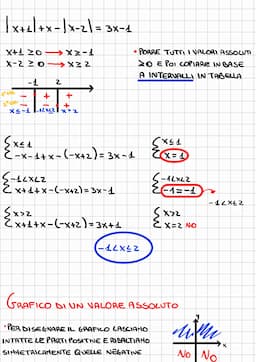 |x+1|+x-|x-2| = 3x-1
x+1 ≥0 → x≥-1
x-2 ≥0 → x≥2
• PORRE TUTTI I VALORI ASSOLUTI
≥0 E POI COPIARE IN BASE
A INTERVALLI IN TABELLA
-1 2
- + +
- - +
x≤-1 -1<x≤2 x>2
{x≤1
-x-1+x-(-x+2)=3x-1
{x≤1
x=1
{-1<x<2
x+1+x-(-x+2)=3x-1
{-1<x≤2
-1=-1 → -1<x≤2
{x>2
x+1+x-(-x+2)=3x+1
{x>2
x=2 NO
-1<x≤2
GRAFICO DI UN VALORE ASSOLUTO
• PER DISEGNARE IL GRAFICO LASCIAMO
INTATTE LE PARTI POSITIVE E RIBALTIAMO
SIMMETRICAMENTE QUELLE NEGATIVE
x
NO NO